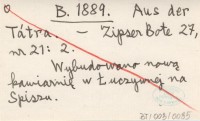 B. 1889. Aus der
Tátra. — Zipser Bote 27,
nr 21: 2.
Wybudowano nową
kawiarnię w Łuczywnej na
Spiszu.
BT/003/0035